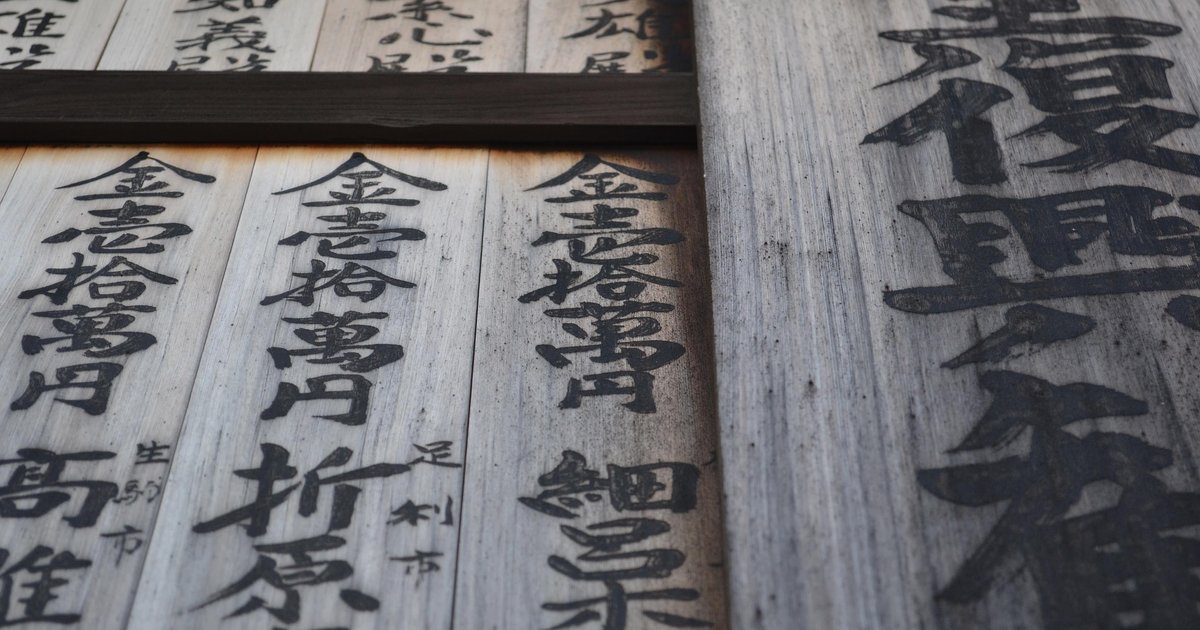 復興
雄殿
心殿
義殿
金壱拾萬円 細
金壱拾萬円 折原
足利市
金壱拾萬円 高
生駒市